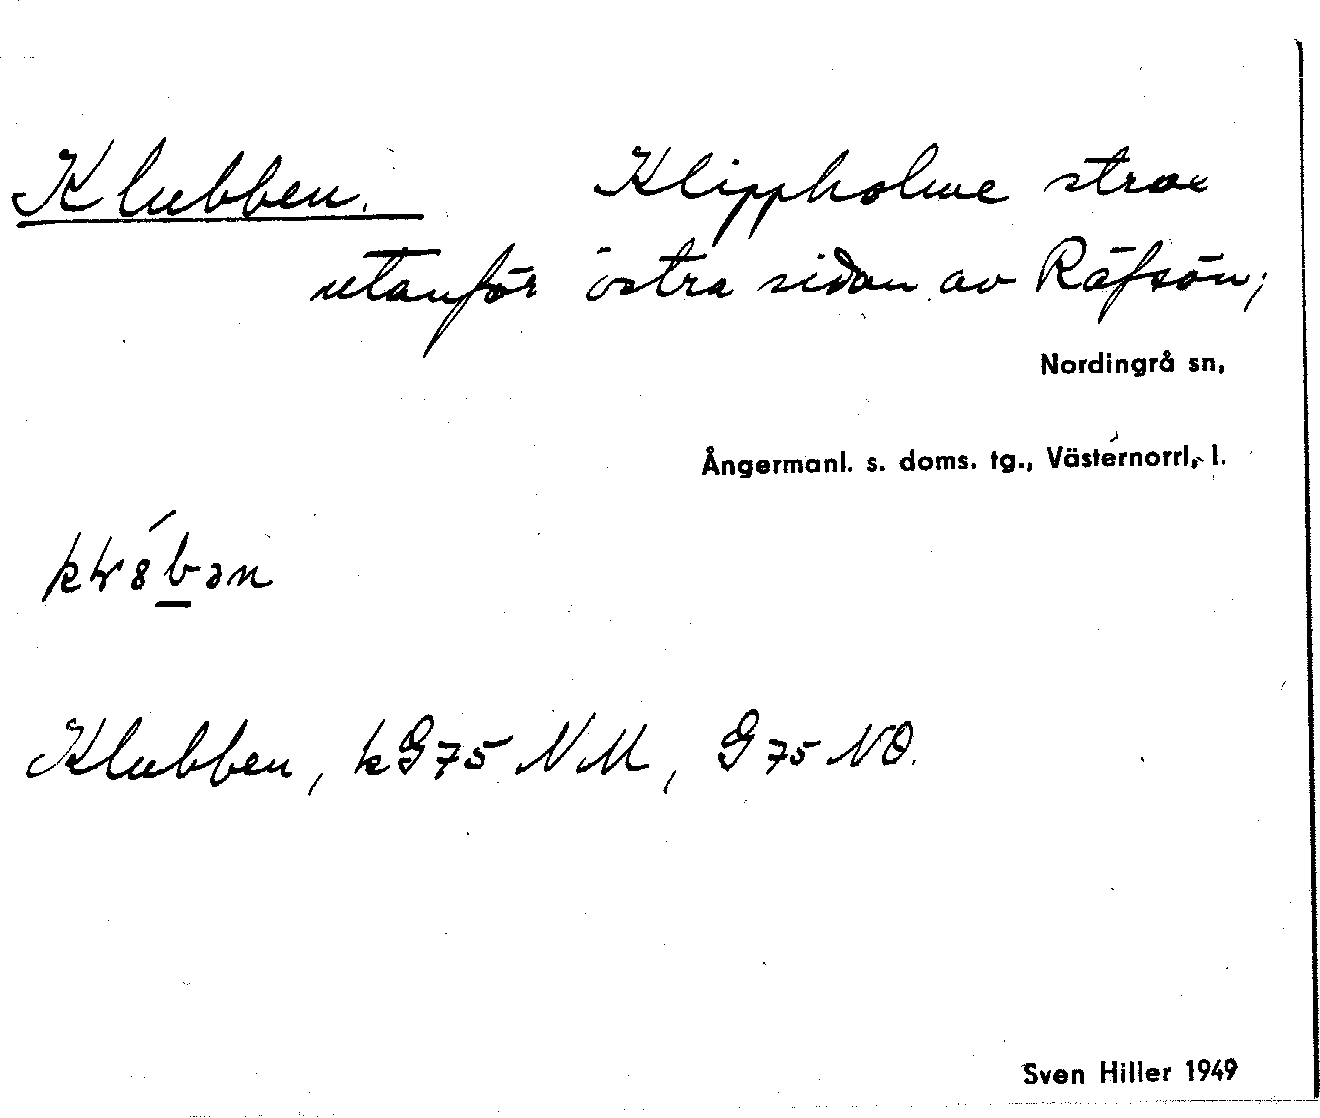 Klubben. Klippholme strax
utanför östra sidan av Räfsön;
Nordingrå sn,
Ångermanl. s. doms. tg., Västernorrl. l.
Klubben, kG75 NM, G75 NO.
Sven Hiller 1949